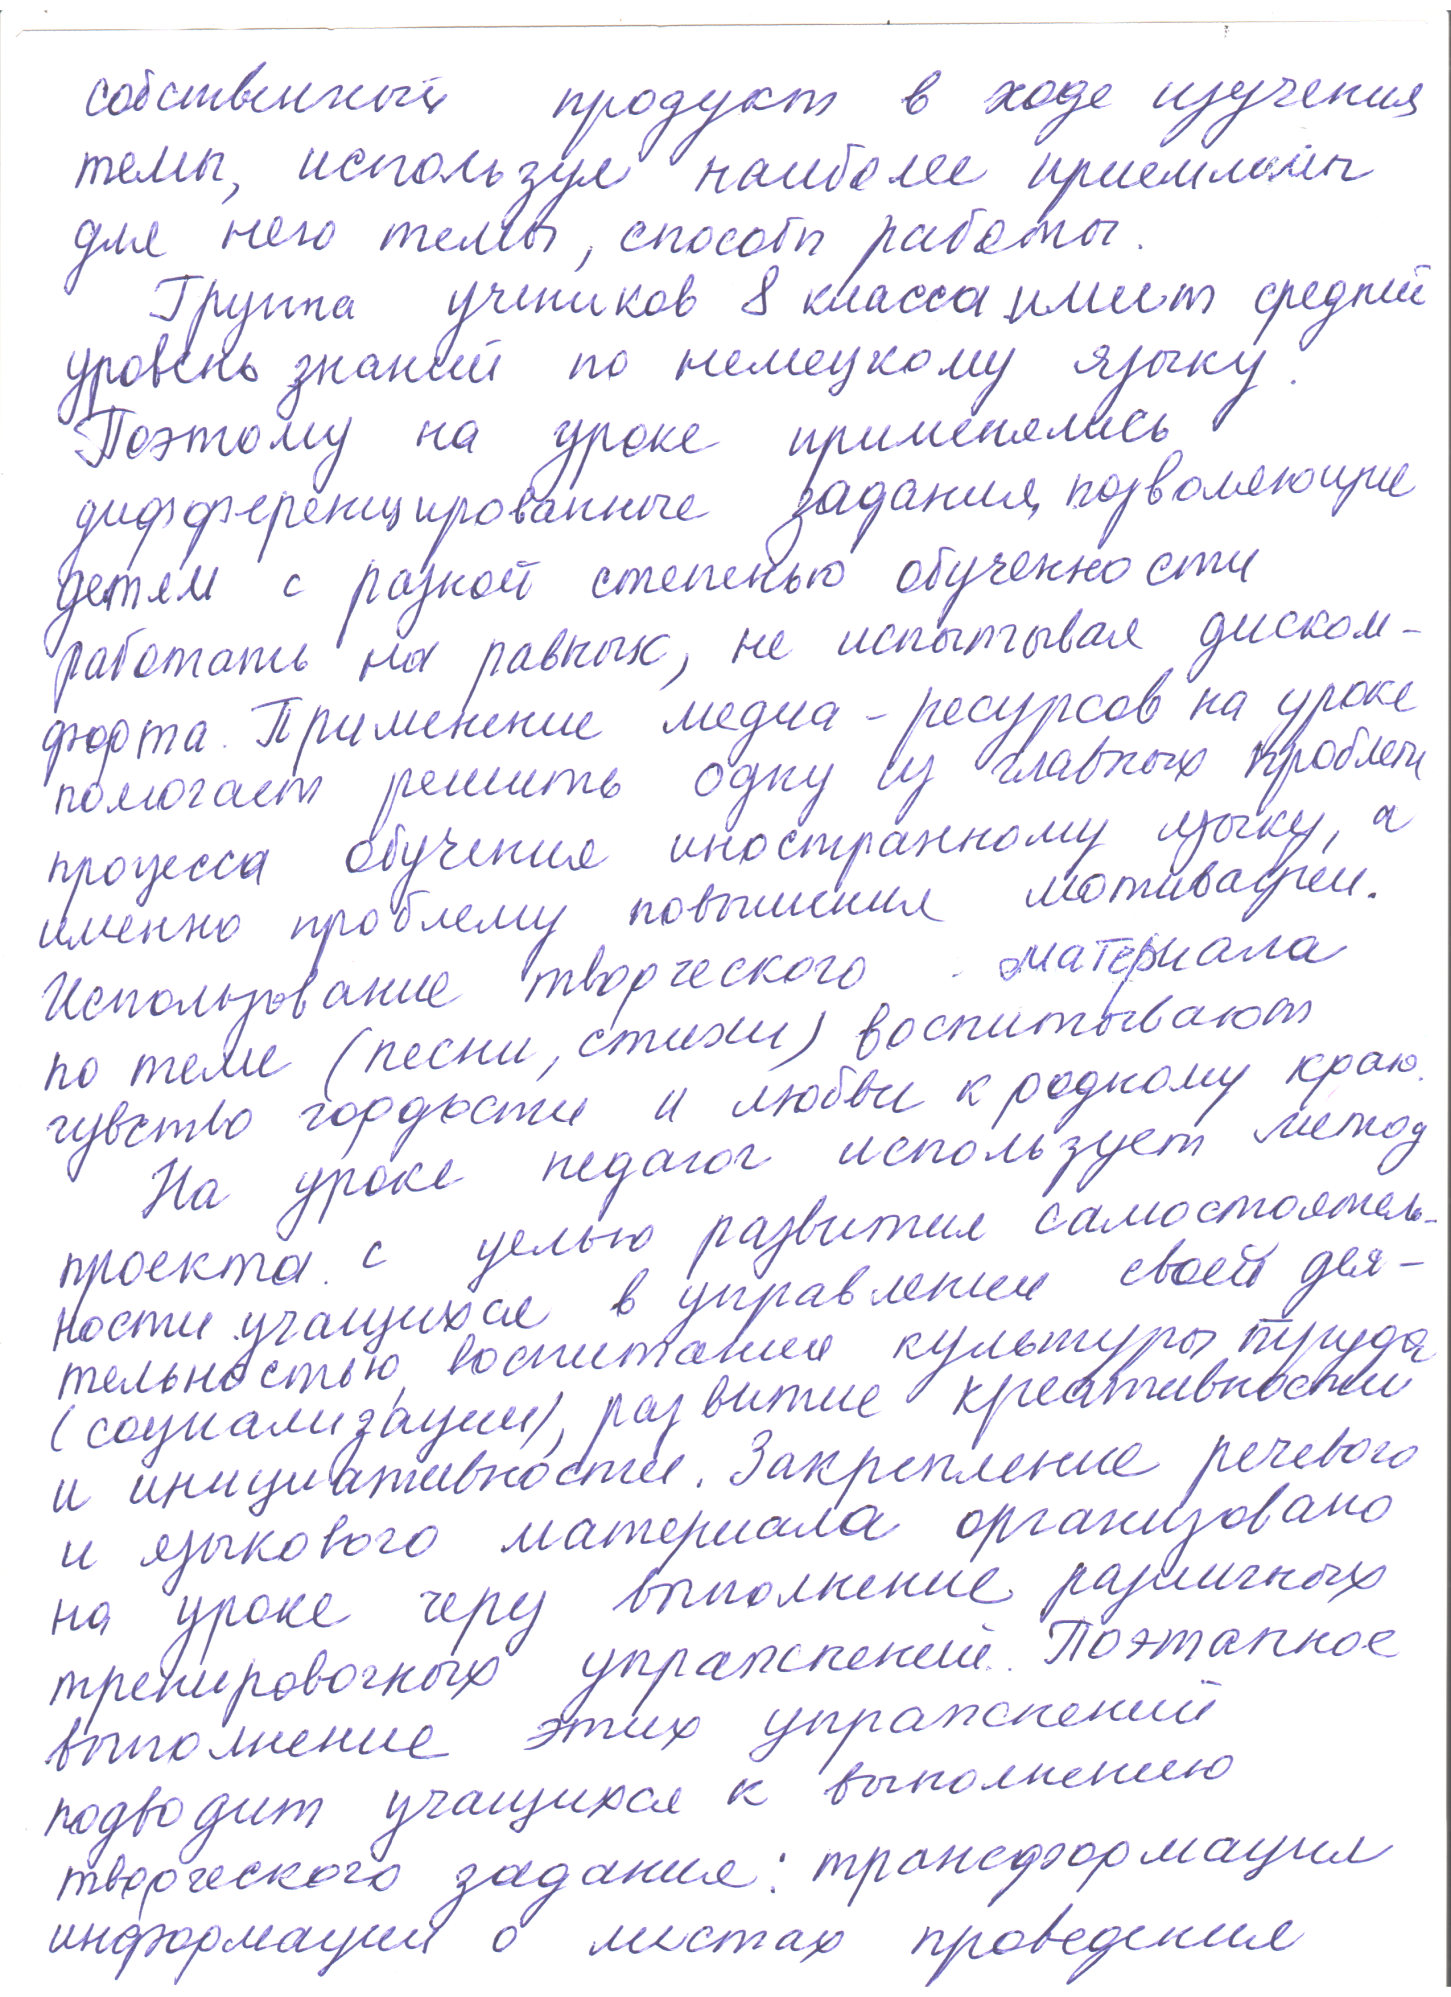 собственный продукт в ходе изучения
темы, используя наиболее приемлемы
для него темы, способы работы.
Группа учеников 8 класса имеет средний
уровень знаний по немецкому языку.
Поэтому на уроке применялись
дифференцированные задания, позволяющие
детям с разной степенью обученности
работать на равных, не испытывая диском-
форта. Применение медиа-ресурсов на уроке
помогает решить одну из главных проблем
процесса обучения иностранному языку, а
именно проблему повышения мотивации.
Использование творческого материала
по теме (песни, стихи) воспитывают
чувство гордости и любви к родному краю.
На уроке педагог использует метод
проекта с целью развития самостоятель-
ности учащихся в управлении своей дея-
тельностью, воспитания культуры труда
(социализации), развитие креативности
и инициативности. Закрепление речевого
и языкового материала организовано
на уроке через выполнение различных
тренировочных упражнений. Поэтапное
выполнение этих упражнений
подводит учащихся к выполнению
творческого задания: трансформация
информации о местах проведения